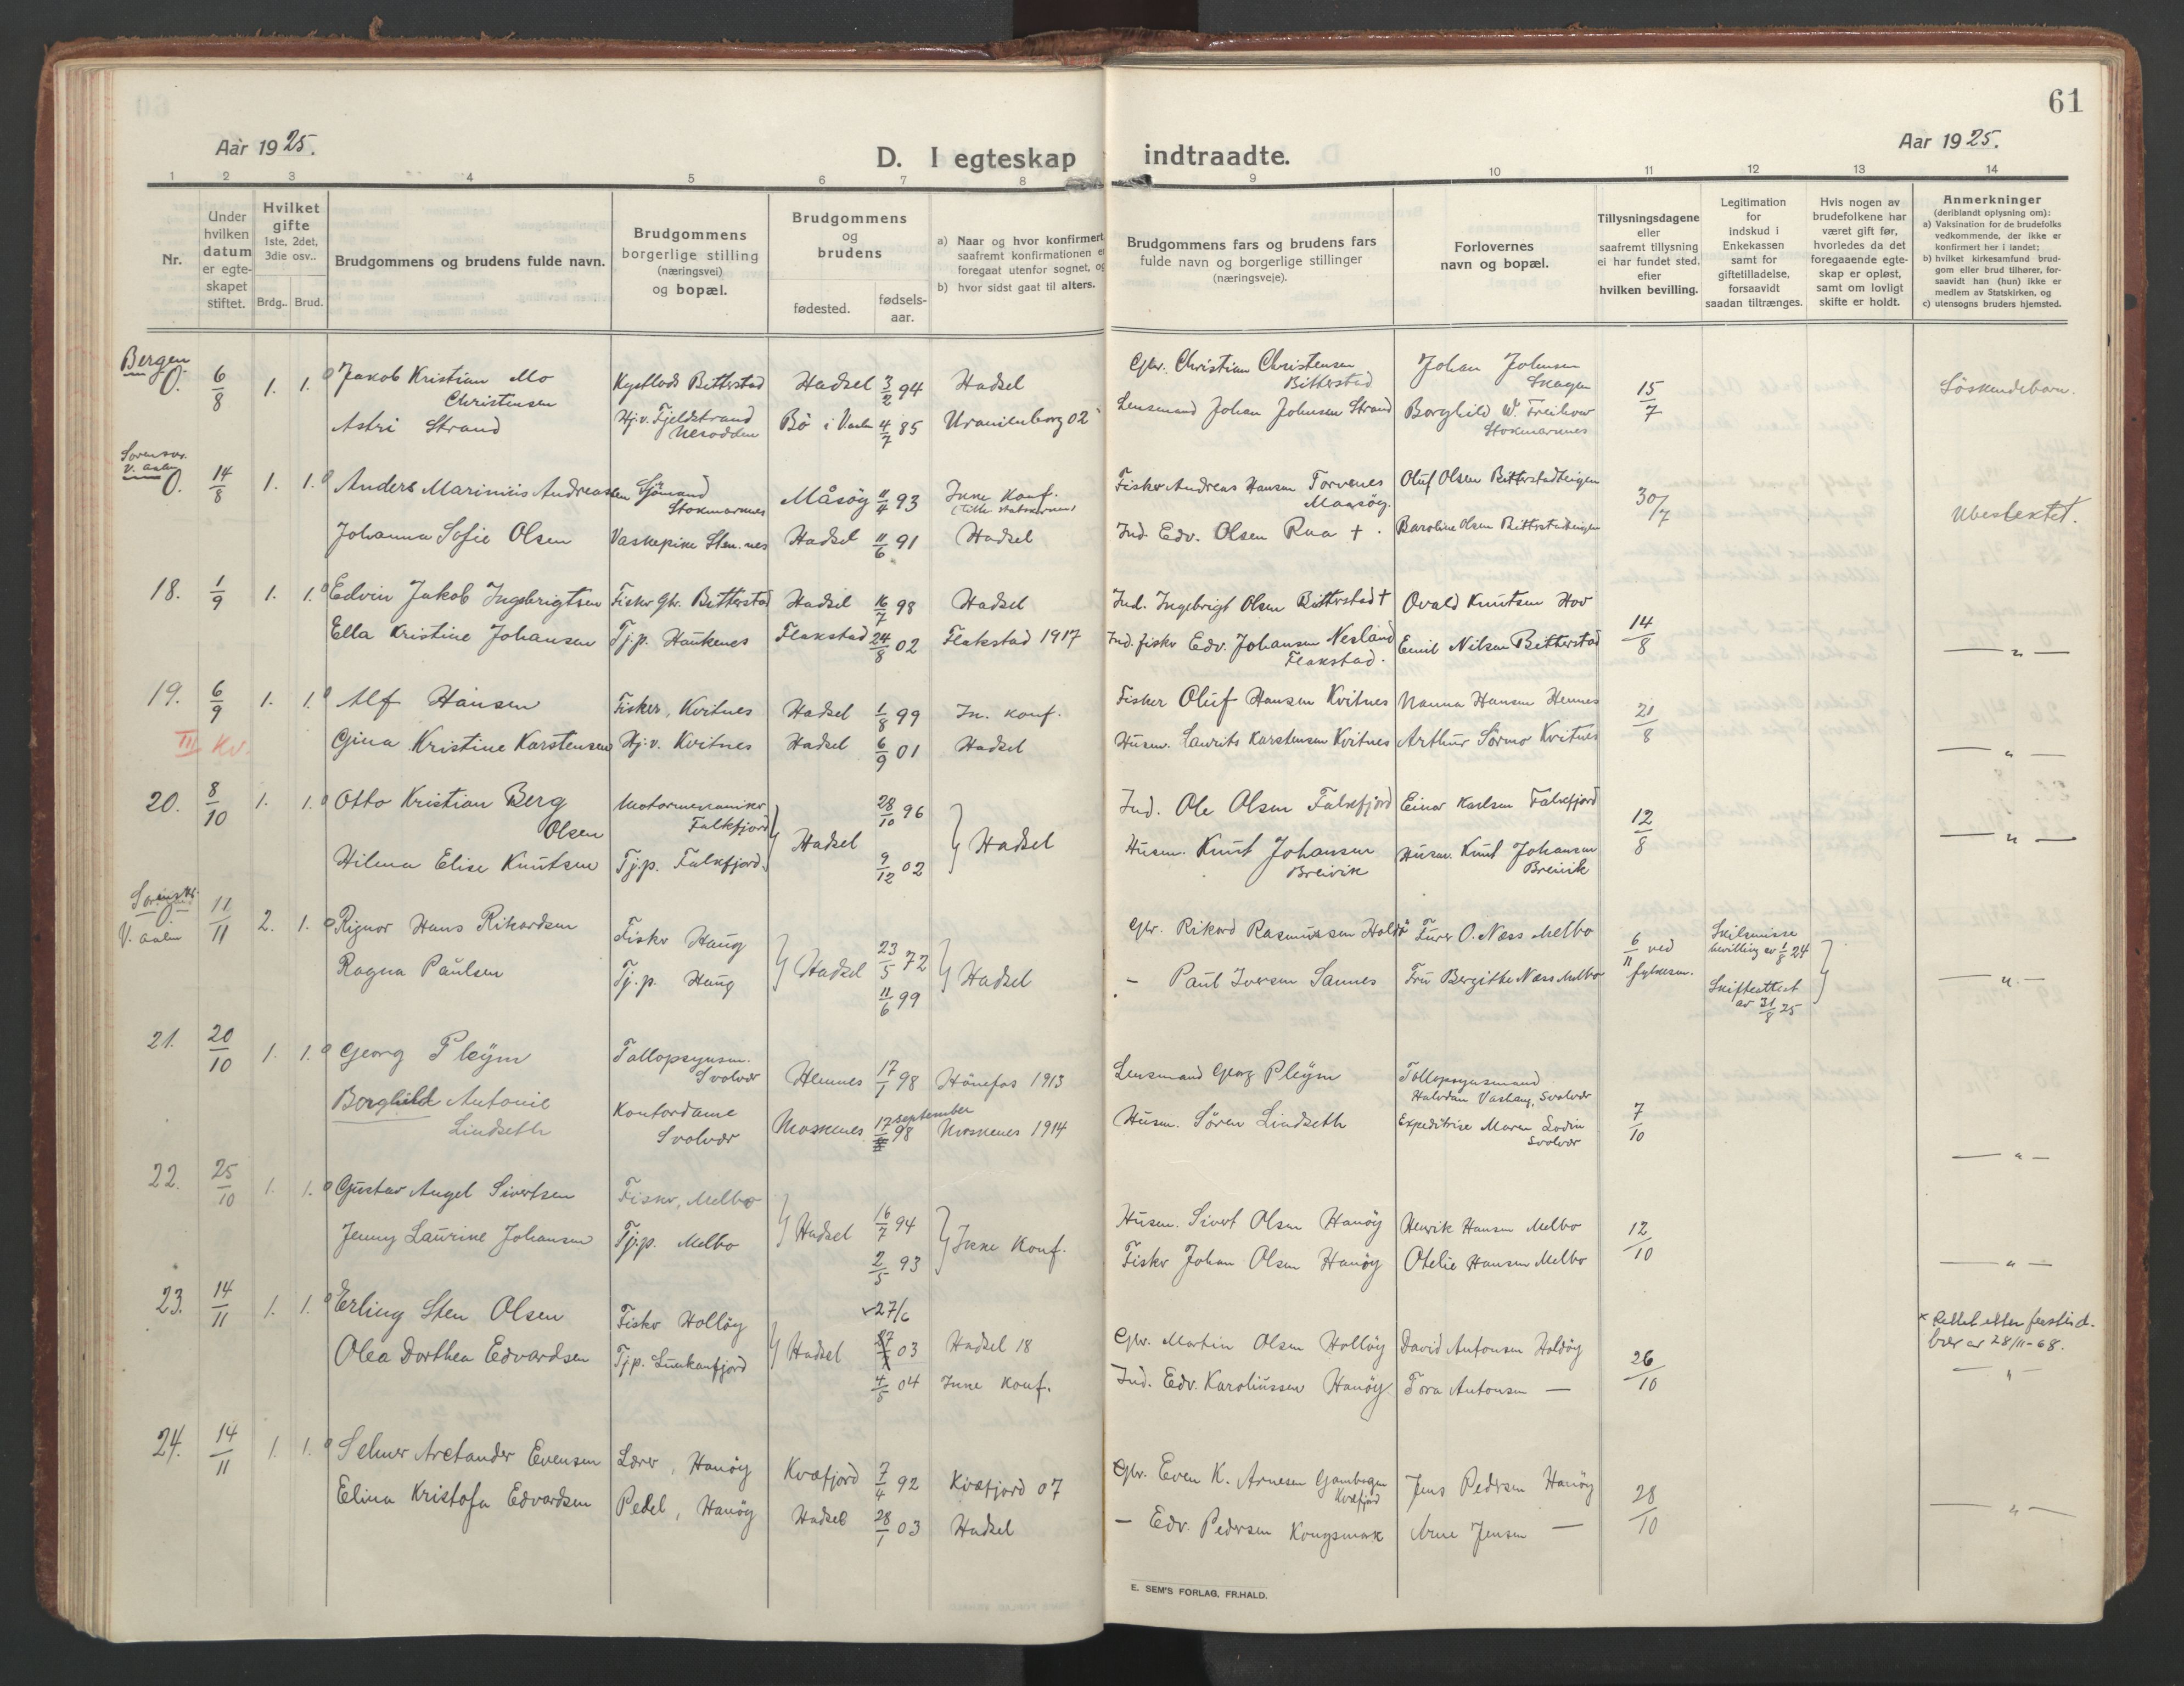 61
Aar 1925.
D. I egteskap indtraadte.
Aar 1925.
1 2 3 4 5 6 7 8 9 10 11 12 13 14
Nr.
Under hvilken datum er egteskapet stiftet.
Hvilket gifte 1ste, 2det, 3die osv..
Brdg.. Brud.
Brudgommens og brudens fulde navn.
Brudgommens borgerlige stilling (næringsvei) og bopæl.
Brudgommens og brudens
fødested.
fødsels-aar.
a) Naar og hvor konfirmert saafremt konfirmationen foregaat utenfor sognet, og
b) hvor sidst gaat til alters.
Brudgommens fars og brudens fars fulde navn og borgerlige stillinger (næringsveje).
Forlovernes navn og bopæl.
Tillysningsdagene eller saafremt tillysning ei har fundet sted, efter hvilken bevilling.
Legitimation for indskud i Enkekassen samt for giftetilladelse, forsaavidt saadan tiltrænges.
Hvis nogen av brudefolkene har været gift før, hvorledes da det foregaaende egteskap er opløst, samt om lovligt skifte er holdt.
Anmerkninger (deriblandt oplysning om):
a) Vaksination for de brudefolks vedkommende, der ikke er konfirmert her i landet;
b) hvilket kirkesamfund brudgom eller brud tilhører, forsaavidt han (hun) ikke er medlem av Statskirken, og
c) utensogns bruders hjemsted.
Bergen
0. 6/8 1. 1. Jakob Kristian Mo Christensen Kystlods Bitterstad Hadsel 3/2 94 Hadsel Gbr. Christian Christensen Bitterstad Johan Johnsen Skagen 15/7 Söskendebarn.
Astri Strand Hj.v. Fjeldstrand Nesodden Bö i V.aalen 4/7 85 Uranienborg 02 Lensmand Johan Johnsen Strand Borghild W. Freihow Stokmarknes
V. aalen
0. 14/8 1. 1. Anders Marinius Andreassen Sjömand Stokmarknes Måsöy 11/4 93 Ikke konf. Fisker Andreas Hansen Torvenes Maasöy. Oluf Olsen Bitterstadteigen 30/7 Ubeslektet.
Johanna Sofie Olsen Vaskepike Stm.nes Hadsel 11/6 91 Hadsel Ind. Edv. Olsen Raa +. Karoline Olsen Bitterstadteigen
18. 1/9 1. 1. Edvin Jakob Ingebrigtsen Fisker Gbr. Bitterstad Hadsel 16/7 98 Hadsel Ind. Ingebrigt Olsen Bitterstad + Ovald Knutsen Hov 14/8 — " —
Ella Kristine Johansen Tj.p. Haukenes Flakstad 24/8 02 Flakstad 1917 Ind. fisker Edv. Johansen Nesland Flakstad. Emil Nilsen Bitterstad
19. 6/9 1. 1. Alf Hansen Fisker, Kvitnes Hadsel 1/8 99 In. konf. Fisker Oluf Hansen Kvitnes Nanna Hansen Hennes 21/8 — " —
III Kv. Gina Kristine Karstensen Hj.v. Kvitnes Hadsel 6/9 01 Hadsel Husm. Laurits Karstensen Kvitnes Arthur Sörmo Kvitnes
20. 8/10 1. 1. Otto Kristian Berg Olsen Motormekaniker Falkfjord Hadsel 28/10 96 Hadsel Ind. Ole Olsen Falkfjord Einar Karlsen Falkfjord 12/8 — " —
Hilma Elise Knutsen Tj.p. Falkfjord. 9/12 02 Husm. Knut Johansen Breivik Husm. Knut Johansen Breivik
V. aalen
11/11 2. 1. Rignor Hans Rikardsen Fisker Haug Hadsel 23/5 72 Hadsel Gbr. Rikard Rasmussen Holdö Furer O. Næss Melbo 6/11 ved fylkesm. Skilsmisse bevilling av 1/8 24
Ragna Paulsen Tj.p. Haug 11/6 99 — Paul Iversen Sannes Fru Bergithe Næss Melbo Skifteattest av 31/8 25 — " —
21. 20/10 1. 1. Georg Pleym Tollopsynsm. Svolvær Hennes 17/1 98 Hönefos 1913 Lensmand Georg Pleym Tollopsynsmand Halvdan Vashaug, Svolvær 7/10
Borghild Antonie Lindseth Kontordame Svolvær Moskenes 17 september 98 Moskenes 1914 Husm. Sören Lindseth Expeditrise Maren Lodin Svolvær — " —
22. 25/10 1. 1. Gustav Angel Sivertsen Fisker, Melbo Hadsel 16/7 94 Ikke konf. Husm. Sivert Olsen Hanöy Henrik Hansen Melbo 12/10
Jenny Laurine Johansen Tj.p. Melbo 2/5 93 Fisker Johan Olsen Hanöy Otelie Hansen Melbo — " —
23. 14/11 1. 1. Erling Sten Olsen Fisker Holdöy Hadsel x27/6 03 Hadsel 18 Gbr. Martin Olsen Holdöy David Antonsen Holdöy 26/10 x Rettet etter brev av 28/11-68.
Olea Dorthea Edvardsen Tj.p. Lunkanfjord 4/5 04 Ikke konf. Ind. Edv. Karoliussen Hanöy Tora Antonsen — — " —
24. 14/11 1. 1. Selmer Arctander Evensen Lærer, Hanöy Kvæfjord 7/4 92 Kvæfjord 07 Gbr. Even K. Arnesen Kvæfjord Jens Pedersen Hanöy 28/10
Elina Kristofa Edvardsen Pedel, Hanöy Hadsel 28/1 03 Hadsel — Edv. Pedersen Kongsmark Arne Jensen — — " —
E. SEM'S FORLAG, FR.HALD.